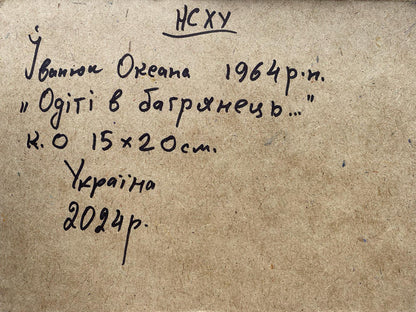 НСХУ
Іванюк Оксана 1964 р.н.
„Одіті в багрянець..."
к. о 15×20 см.
Україна
2024 р.